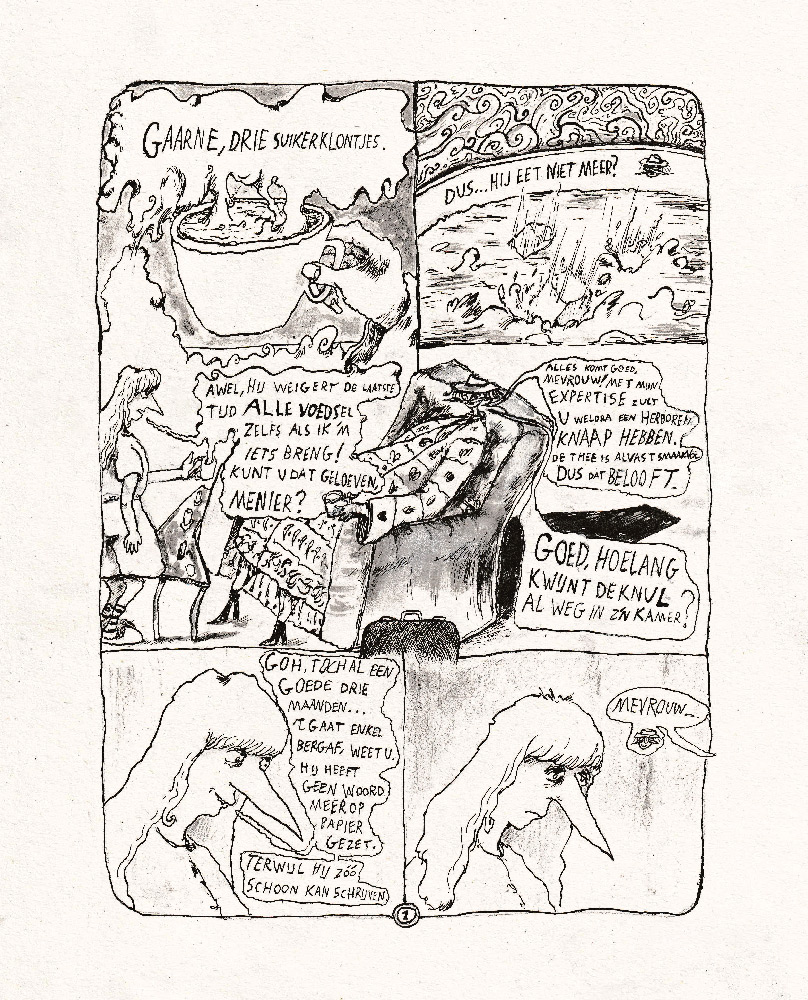 GAARNE, DRIE SUIKERKLONTJES.
DUS... HIJ EET NIET MEER?
AWEL, HIJ WEIGERT DE LAATSTE
TIJD ALLE VOEDSEL
ZELFS ALS IK 'M
IETS BRENG!
KUNT U DAT GELOEVEN,
MENIER?
ALLES KOMT GOED,
MEVROUW! MET MIJN
EXPERTISE ZULT
U WELDRA EEN HERBOREN
KNAAP HEBBEN.
DE THEE IS ALVAST SMAKELIJK
DUS DAT BELOOFT.
GOED, HOELANG
KWIJNT DE KNUL
AL WEG IN Z'N KAMER?
GOH, TOCH AL EEN
GOEDE DRIE
MAANDEN...
'T GAAT ENKEL
BERGAF, WEET U.
HIJ HEEFT
GEEN WOORD
MEER OP
PAPIER
GEZET.
TERWIJL HIJ ZÓÓ
SCHOON KAN SCHRIJVEN
MEVROUW...
1